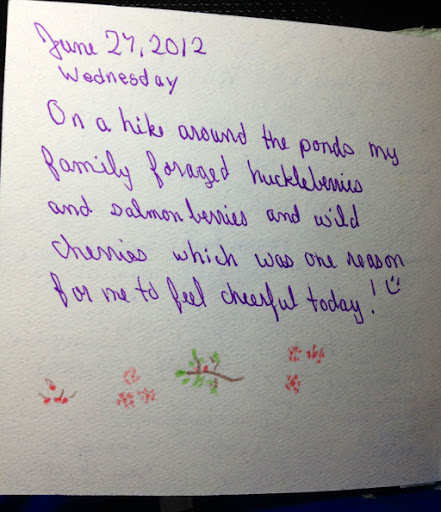 June 27, 2012
Wednesday
On a hike around the ponds my
family foraged huckleberries
and salmon berries and wild
cherries which was one reason
for me to feel cheerful today! :)